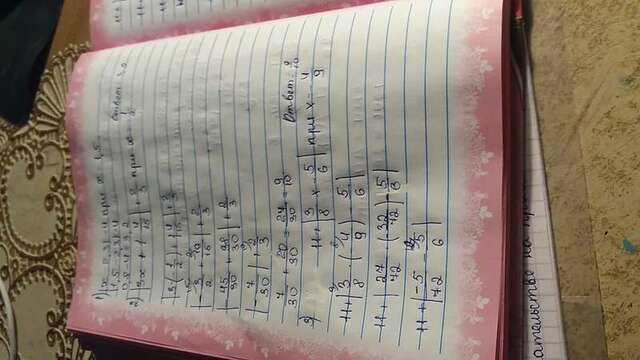 1) |x - 2,3| - 4 при x = 1,5
|1,5 - 2,3| - 4
0,8 - 4 = 3,2
Ответ: 3,2
2) |3x + 1 4/15| + 2/3 при x = 1/2
|3·(1/2) + 1 4/15| + 2/3
|-3/2 + 19/15| + 2/3
|45/30 + 38/30| + 2/3
|-7/30| + 2/3
7/30 + 20/30 = 27/30 = 9/10
Ответ: 9/10
3) 11 + |3/8 x - 5/6| при x - 4/9
11 + |3/8 · (-4/9) - 5/6|
11 + |27/72 · (-32/72) - 5/6|
11 + |-5/72 - 5/6|
ательстве на